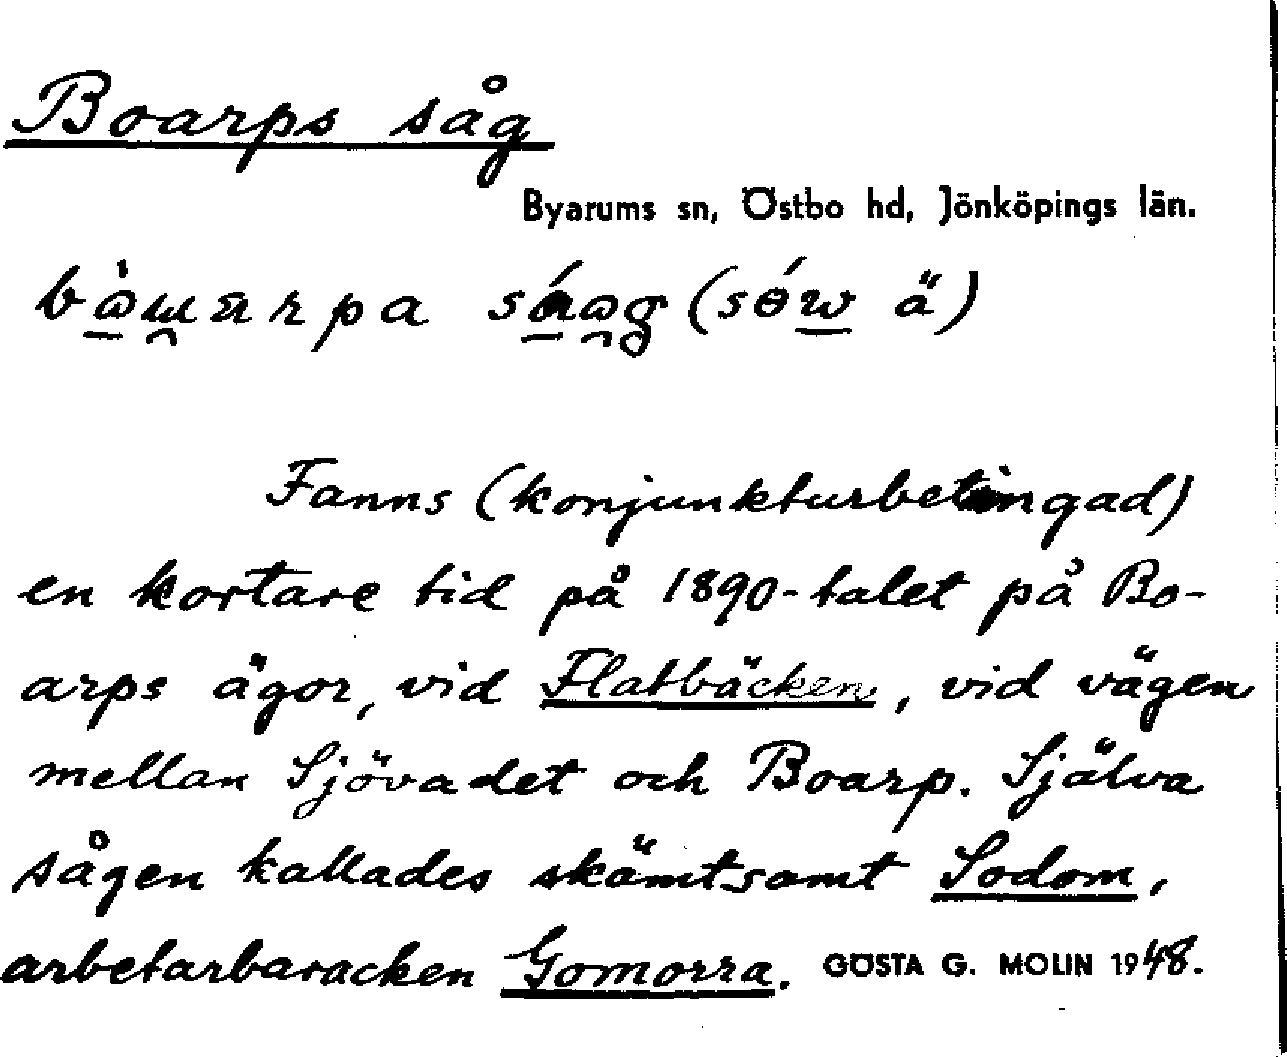 Boarps såg
Byarums sn, Östbo hd, Jönköpings län.
Fanns (konjunkturbetingad)
en kortare tid på 1890-talet på Bo-
arps ägor, vid Flatbäcken, vid vägen
mellan Sjövadet och Boarp. Själva
sågen kallades skämtsamt Sodom,
arbetarbaracken Gomorra. GÖSTA G. MOLIN 1948.